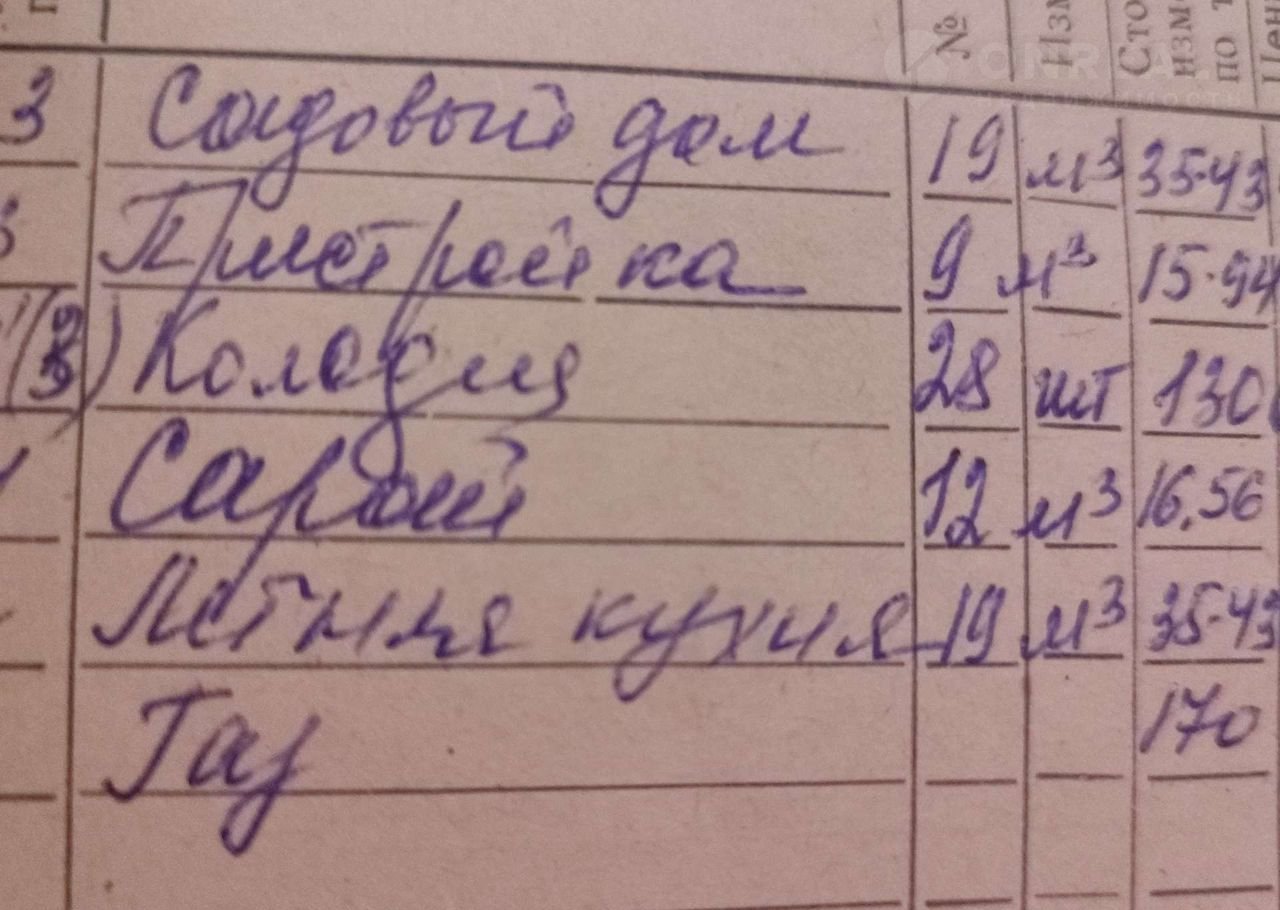 № Изм Сто изме по т Цен
3 Садовый дом 19 м³ 35-43
3 Пристройка 9 м³ 15-94
(3) Колодец 28 шт 130
Сарай 12 м³ 16,56
Летняя кухня 19 м³ 35-43
Газ 170